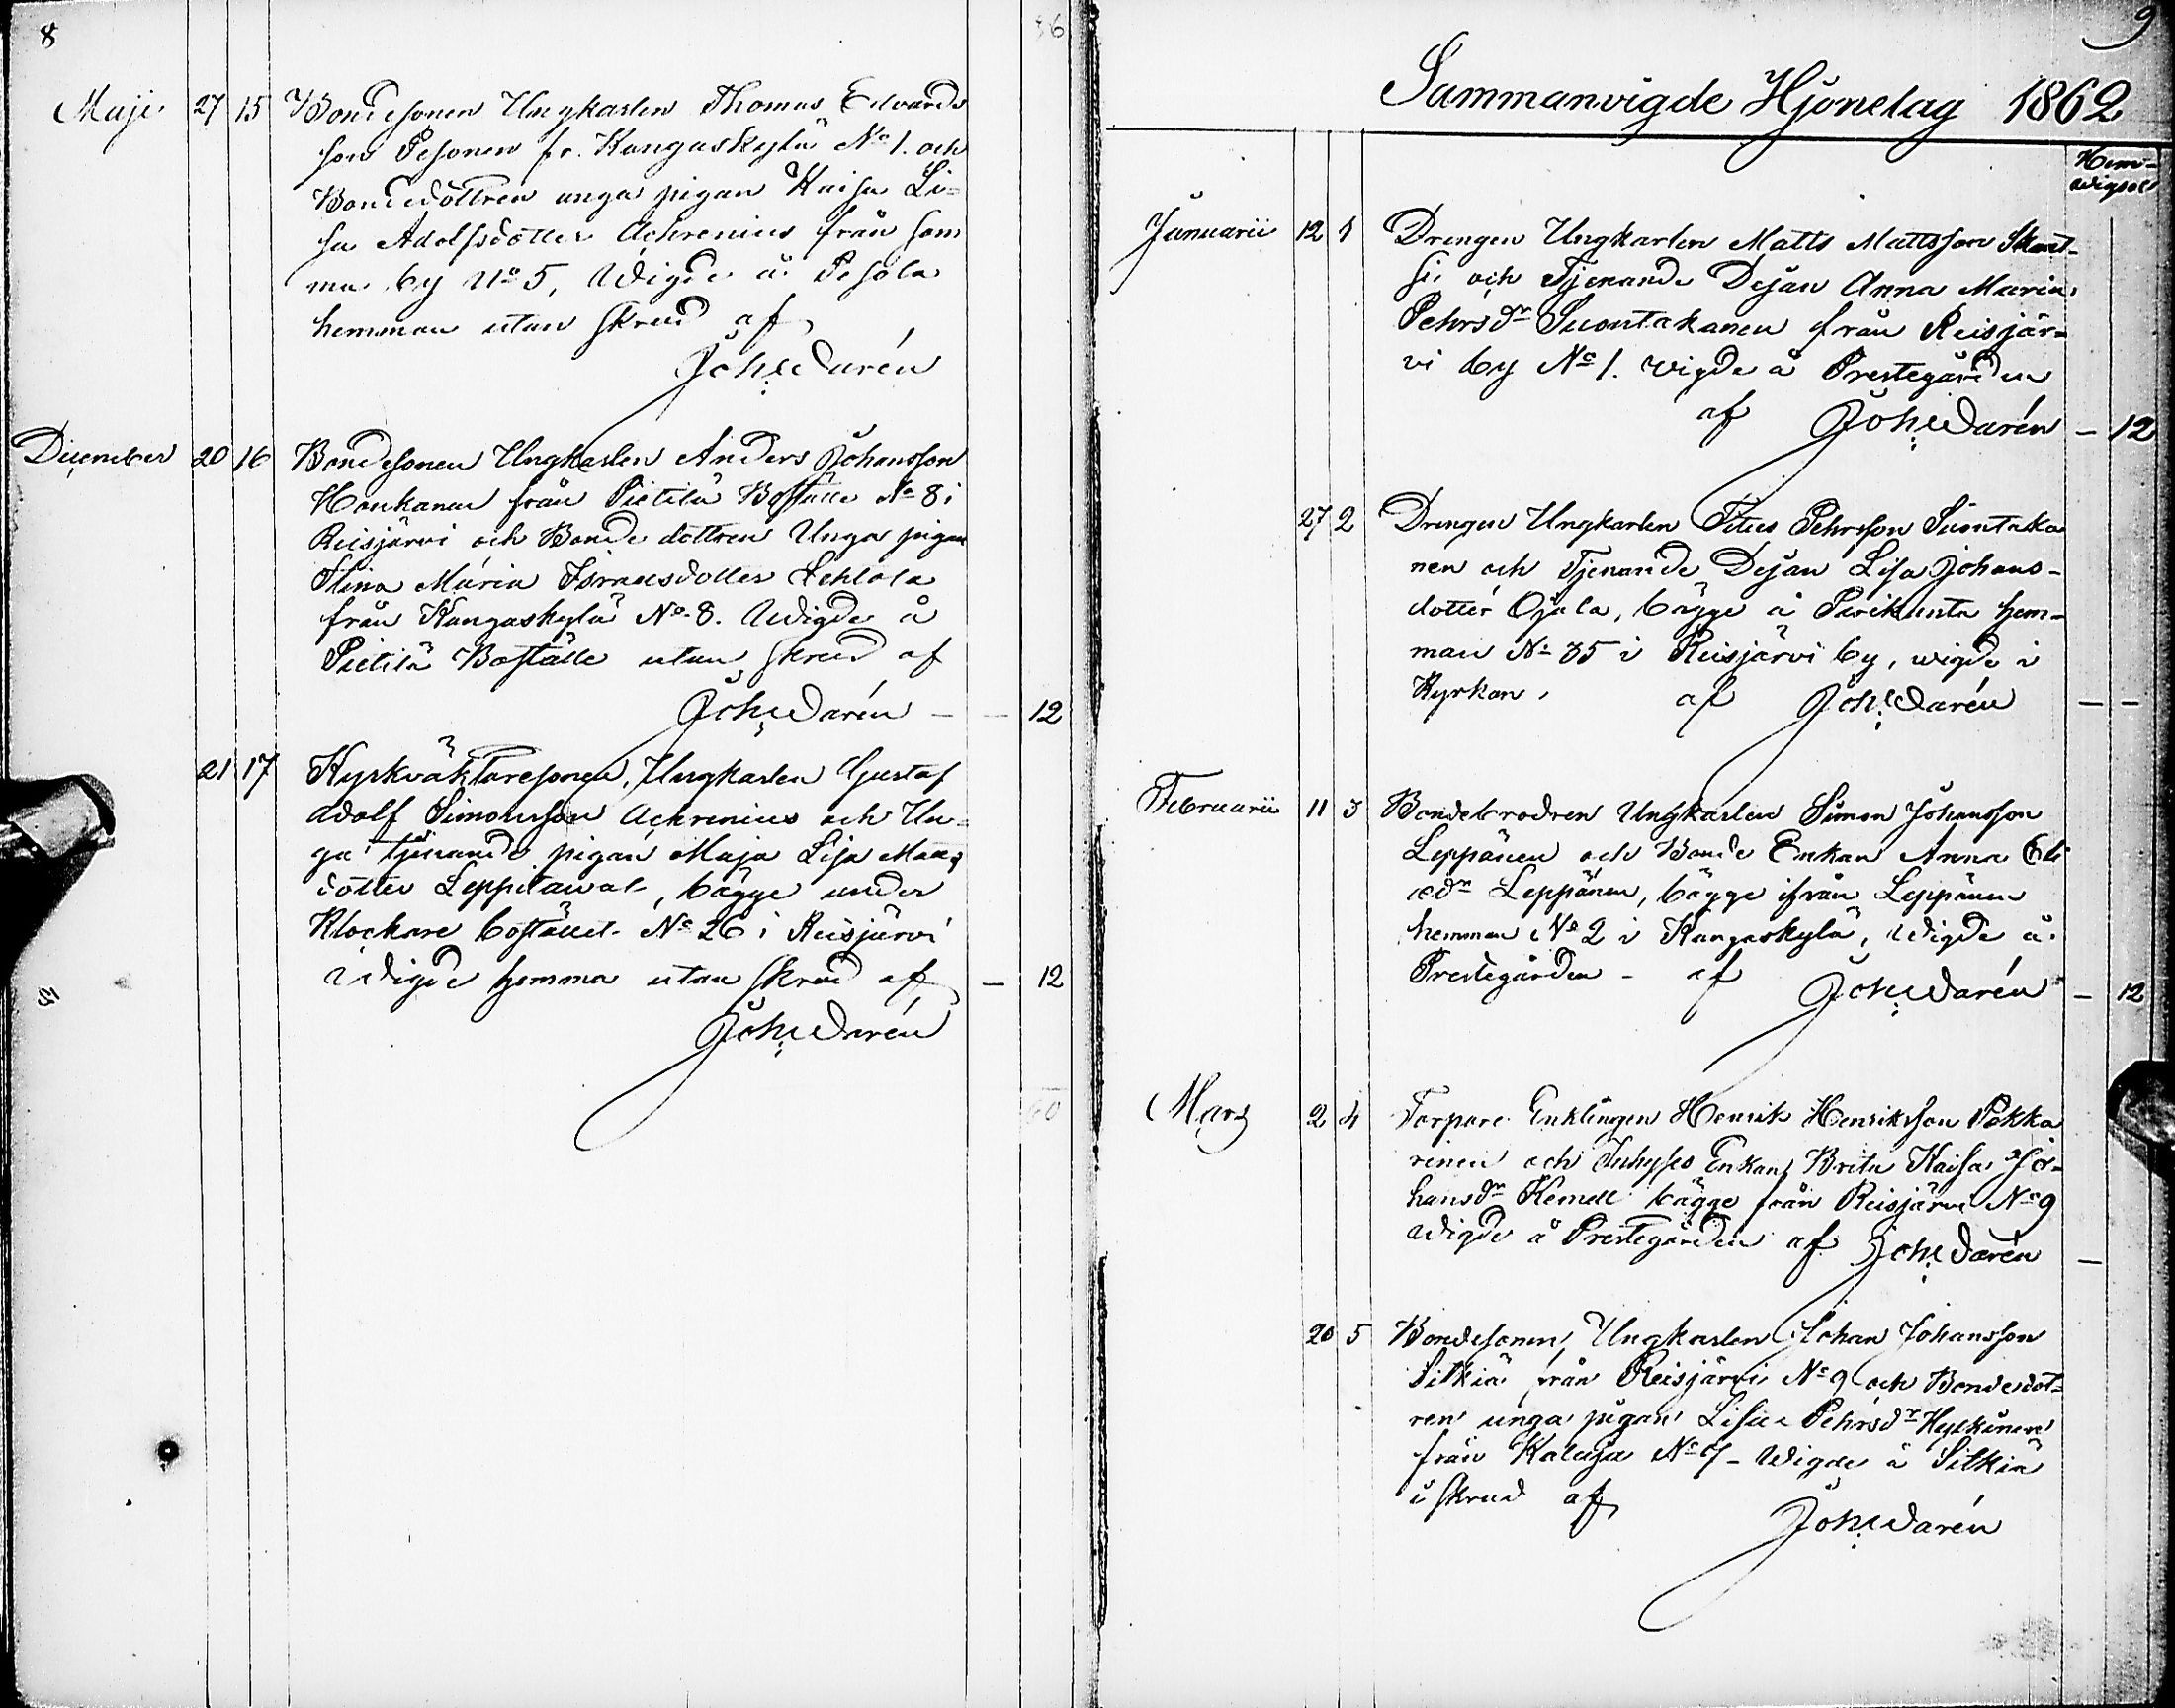 8
36
Maji 27 15 Bondesonen Ungkarlen Thomas Edvards
son Pesonen fr. Kangaskylä No 1. och
Bondedottren unga pigan Kaisa Li=
sa Adolfsdotter Achrenius från sam
ma by No 5, Wigde å Pesola
hemman utan skrud af
Joh: Darén
December 20 16 Bondesonen Ungkarlen Anders Johansson
Honkanen från Pietilä Boställe No 8 i
Reisjärvi och Bonde dottren Unga pigan
Stina Maria Israelsdotter Lehtola
från Kangaskylä No 8. Wigde å
Pietilä Boställe utan skrud af
Joh: Darén — — 12
21 17 Kyrkväktaresonen, Ungkarlen Gustaf
Adolf Simonsson Achrenius och Un=
ga tjenande pigan Maja Lisa Matts
dotter, bägge under
Klockare bostället No 26 i Reisjärvi
Wigde hemma utan skrud af — 12
Joh: Darén
60
9
Sammanvigde Hjonelag 1862
Hem-
wigsel
Januarii 12 1 Drengen Ungkarlen Matts Mattsson
och Tjenande Dejan Anna Maria
Pehrsdr Suontakanen från Reisjär=
vi by No 1. wigde å Prestegården
af Joh: Darén — 12
27 2 Drengen Ungkarlen Titus Pehrsson Suontaka
nen och Tjenande Dejan Lisa Johans-
dotter Ojala, bägge å Parikunta hem-
man No 35 i Reisjärvi by, wigde i
Kyrkan, af Joh: Darén — —
Februarii 11 3 Bondebrodren Ungkarlen Simon Johansson
Leppänen och Bonde Enkan Anna Eli
ædr Leppänen, bägge ifrån Leppänen
hemman No 2 i Kangaskylä, Wigde å
Prestegården - af Joh: Darén — 12
Mars 2 4 Torpare Enklingen Henrik Henriksson Pokka
rinen och Inhyses Enkan Brita Kaisa Jo-
hansdr Kemell bägge från Reisjärvi No 9
wigde å Prestegården af Joh: Darén —
20 5 Bondesonen, Ungkarlen Johan Johansson
Sitkiä från Reisjärvi No 9 och Bondedot=
ren unga pigan Lisa Pehrsdr Hylkänen
från Kalaja No 7 - Wigde å Sitkiä
i skrud af
Joh: Darén